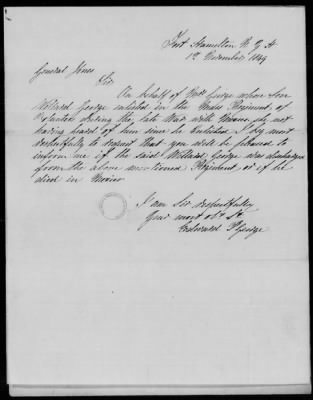 Fort Hamilton N.Y.H
1st December 1849
General Jones
Sir
On behalf of George whose son
Willard George enlisted in the Regiment of
during the late War with Mexico, and not
having heard of him since he Enlisted I beg most
respectfully to request that you will be pleased to
inform me if the said Willard George was discharged
from the above mentioned Regiment or if he
died in Mexico
I am Sir respectfully
Your most obt St
Edward George